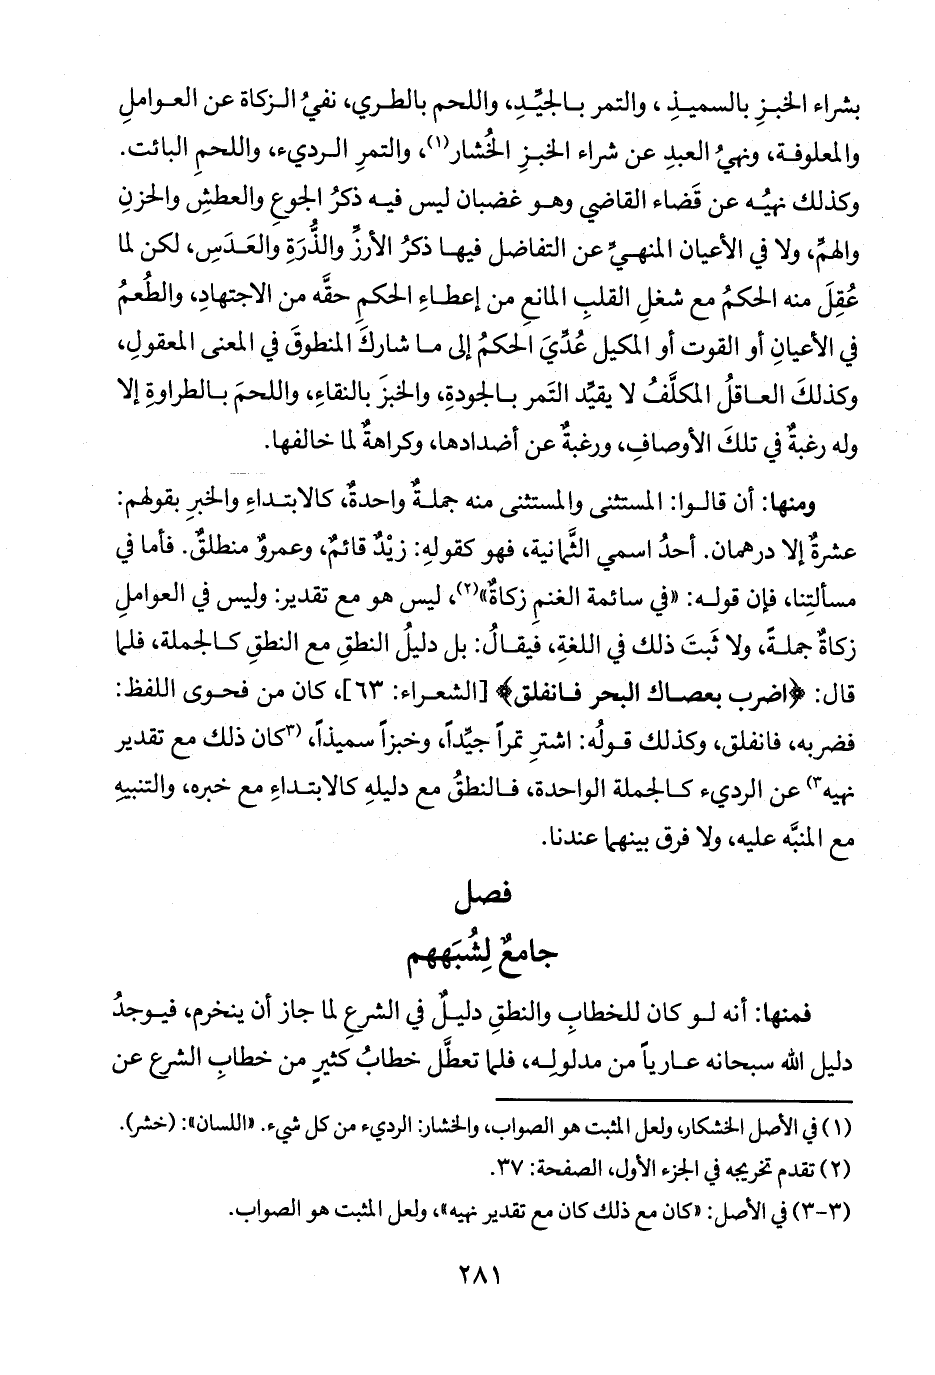 بشراء الخبزِ بالسميذِ، والتمر بـالجيِّدِ، واللحم بالطري، نفيُ الـزكاة عن العـواملِ
والمعلوفـة، ونهيُ العبدِ عن شراء الخبـزِ الخُشار(١)، والتمرِ الـرديء، واللحمِ البائت.
وكذلك نهيُـه عن قَضاء القاضي وهـو غضبان ليس فيـه ذكرُ الجوعِ والعطشِ والحزنِ
والهمِّ، ولا في الأعيان المنهيِّ عن التفاضل فيهـا ذكرُ الأرزِّ والذُّرَةِ والعَـدَسِ، لكن لما
عُقِلَ منه الحكمُ مع شغلِ القلبِ المانع من إعطـاءِ الحكمِ حقَّه من الاجتهادِ، والطُعمُ
في الأعيانِ أو القوت أو المكيل عُدِّيَ الحكمُ إلى مـا شاركَ المنطوقَ في المعنى المعقولِ،
وكذلكَ العـاقلُ المكلَّفُ لا يقيِّد التَمر بـالجودةِ، والخبزَ بالنقاءِ، واللحمَ بـالطراوةِ إلا
وله رغبةٌ في تلكَ الأوصافِ، ورغبةٌ عن أضدادها، وكراهةٌ لما خالفها.
ومنها: أن قالـوا: المستثنى والمستثنى منه جملـةٌ واحدةٌ، كالابتـداءِ والخبرِ بقولهم:
عشرةٌ إلا درهمان. أحدُ اسمي الثَّمانية، فهو كقولهِ: زيْدٌ قائمٌ، وعمروٌ منطلقٌ. فأما في
مسألتِنا، فإن قولـه: «في سائمة الغنمِ زكاةٌ»(٢)، ليس هو مع تقدير: وليس في العواملِ
زكاةٌ جملـةً، ولا ثَبتَ ذلك في اللغةِ، فيقـالُ: بل دليلُ النطقِ مع النطقِ كـالجملة، فلما
قال: ﴿اضرب بعصاك البحر فـانفلق﴾ [الشعـراء: ٦٣]، كان من فحوى اللفظ:
فضربه، فانفلق، وكذلك قـولُه: اشترِ تمراً جيِّداً، وخبزاً سميذاً، (٣كان ذلك مع تقدير
نهيه٣) عن الرديء كـالجملة الواحدة، فـالنطقُ مع دليلهِ كالابتـداءِ مع خبره، والتنبيهِ
مع المنبَّه عليه، ولا فرق بينهما عندنا.
فصل
جامعٌ لِشُبَههم
فمنها: أنه لـو كان للخطابِ والنطقِ دليلٌ في الشرعِ لما جاز أن ينخرم، فيـوجدُ
دليل الله سبحانه عـارياً من مدلولـه، فلما تعطَّل خطابُ كثيرٍ من خطابِ الشرع عن
(١) في الأصل الخشكار، ولعل المثبت هو الصواب، والخشار: الرديء من كل شيء. «اللسان»: (خشر).
(٢) تقدم تخريجه في الجزء الأول، الصفحة: ٣٧.
(٣-٣) في الأصل: «كان مع ذلك كان مع تقدير نهيه»، ولعل المثبت هو الصواب.
٢٨١